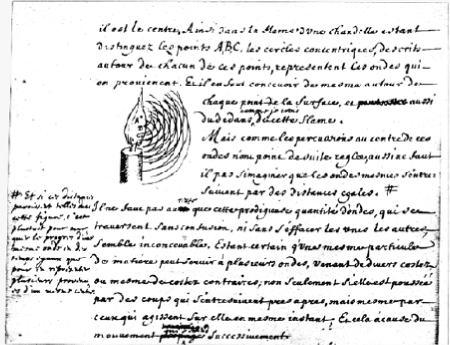 il est le centre. Ainsi dans la flame d'une chandelle estant
distinguez les points A, B, C, les cercles concentriques, descrits
autour de chacun de ces points, representent les ondes qui
en provienent. Et il en faut concevoir de mesme autour de
chaque point de la surface, et aussi
du dedans, de cette flame.
Mais comme les percussions au centre de ces
ondes n'ont point de suite reglee, aussi ne faut
il pas s'imaginer que les ondes mesmes s'entre
suivent par des distances egales. #
# Et si ces distances
paroissent telles dans
cette figure, c'est
plustost pour
que le progres d'une
mesme onde en des
temps egaux que
pour en representer
plusieurs provenues
d'un mesme centre
Il ne faut pas que cette prodigieuse quantité d'ondes, qui se
traversent sans confusion, ni sans s'effacer les unes les autres,
semble inconcevable. Estant certain qu'une mesme particule
de matiere peut servir à plusieurs ondes, venant de divers costez
ou mesme de costez contraires; non seulement si elle est poussée
par des coups qui s'entresuivent pres apres, mais mesme par
ceux qui agissent sur elle en mesme instant; Et cela à cause du
mouvement successivement